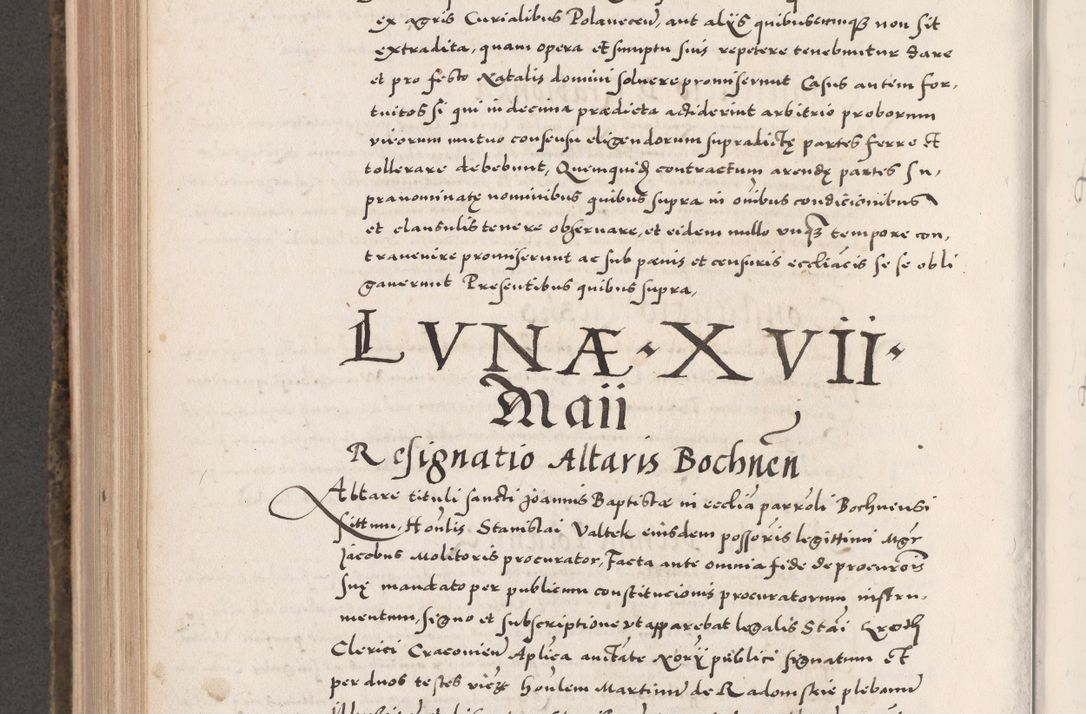 ex agris Curialibus Polanecen̄, aut alÿs quibuscumqȝ non sit
extradita, quam opera et sumptu suis repetere tenebuntur dare
et pro festo Natalis domini soluere promiserunt Casus autem for,
tuitos si qui in decima prædicta acciderint arbitrio proborum
virorum mutuo consensu eligendorum supradictę partes ferre et
tollerare debebunt, Quemquidȝ contractum arendę partes In,
pranominatę nominibus quibus supra in om̄ibus condicionibus
et clausulis tenere obseruare, et eidem nullo vnqȝ tempore con,
trauenire promiserunt ac sub pœnis et censuris eccliācis se se obli
gauerunt Presentibus quibus supra,
LVNÆ · XVII ·
Maii
Resignatio Altaris Bochnen̄
Altare tituli sancti Joannis Baptistæ in ecclīa parrōli Bochnensi
sittum, Hon̄lis Stanislai Valtek eiusdem possōris legittimi Mgr̄
Jacobus Molitoris procurator, Facta ante omnia fide de procurōis
suę mandato per publicum constitucionis procuratorum instru,
mentum, signo et subscriptione vt apparebat legalis Stāi
Clerici Cracouien̄ Aplīca auc̄tate Norÿ publici signatum et
per duos testes videlȝ hon̄lem Martinū de Radomskie plebanū